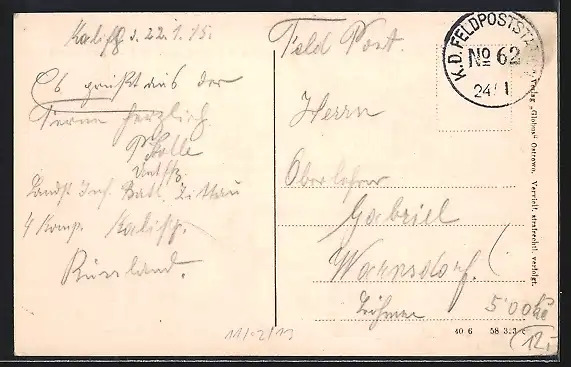 Kalisch d. 22.1.15.
Es grüßt aus der
Ferne herzlich
P. Nolle
Utffz.
Landst. Inf. Batl. Zittau
4 Komp. Kalisch.
Russland.
Feld Post.
K.D. FELDPOSTSTATION
No 62
24/1
Herrn
Oberlehrer
Gabriel
Warnsdorf.
Böhmen
Verlag „Globus“ Ostrowo. Vervielf. strafrechtl. verfolgt.
40 6 58 323
11/02/13
5'00
(12.-